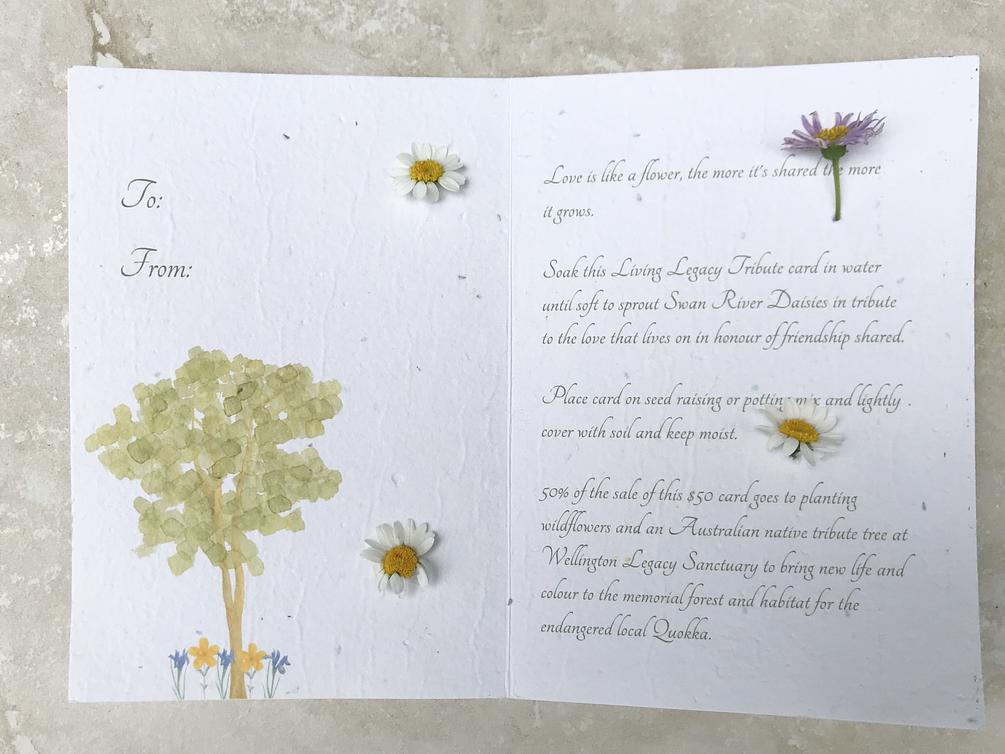 To:
From:
Love is like a flower, the more it's shared the more
it grows.
Soak this Living Legacy Tribute card in water
until soft to sprout Swan River Daisies in tribute
to the love that lives on in honour of friendship shared.
Place card on seed raising or potting mix and lightly
cover with soil and keep moist.
50% of the sale of this $50 card goes to planting
wildflowers and an Australian native tribute tree at
Wellington Legacy Sanctuary to bring new life and
colour to the memorial forest and habitat for the
endangered local Quokka.